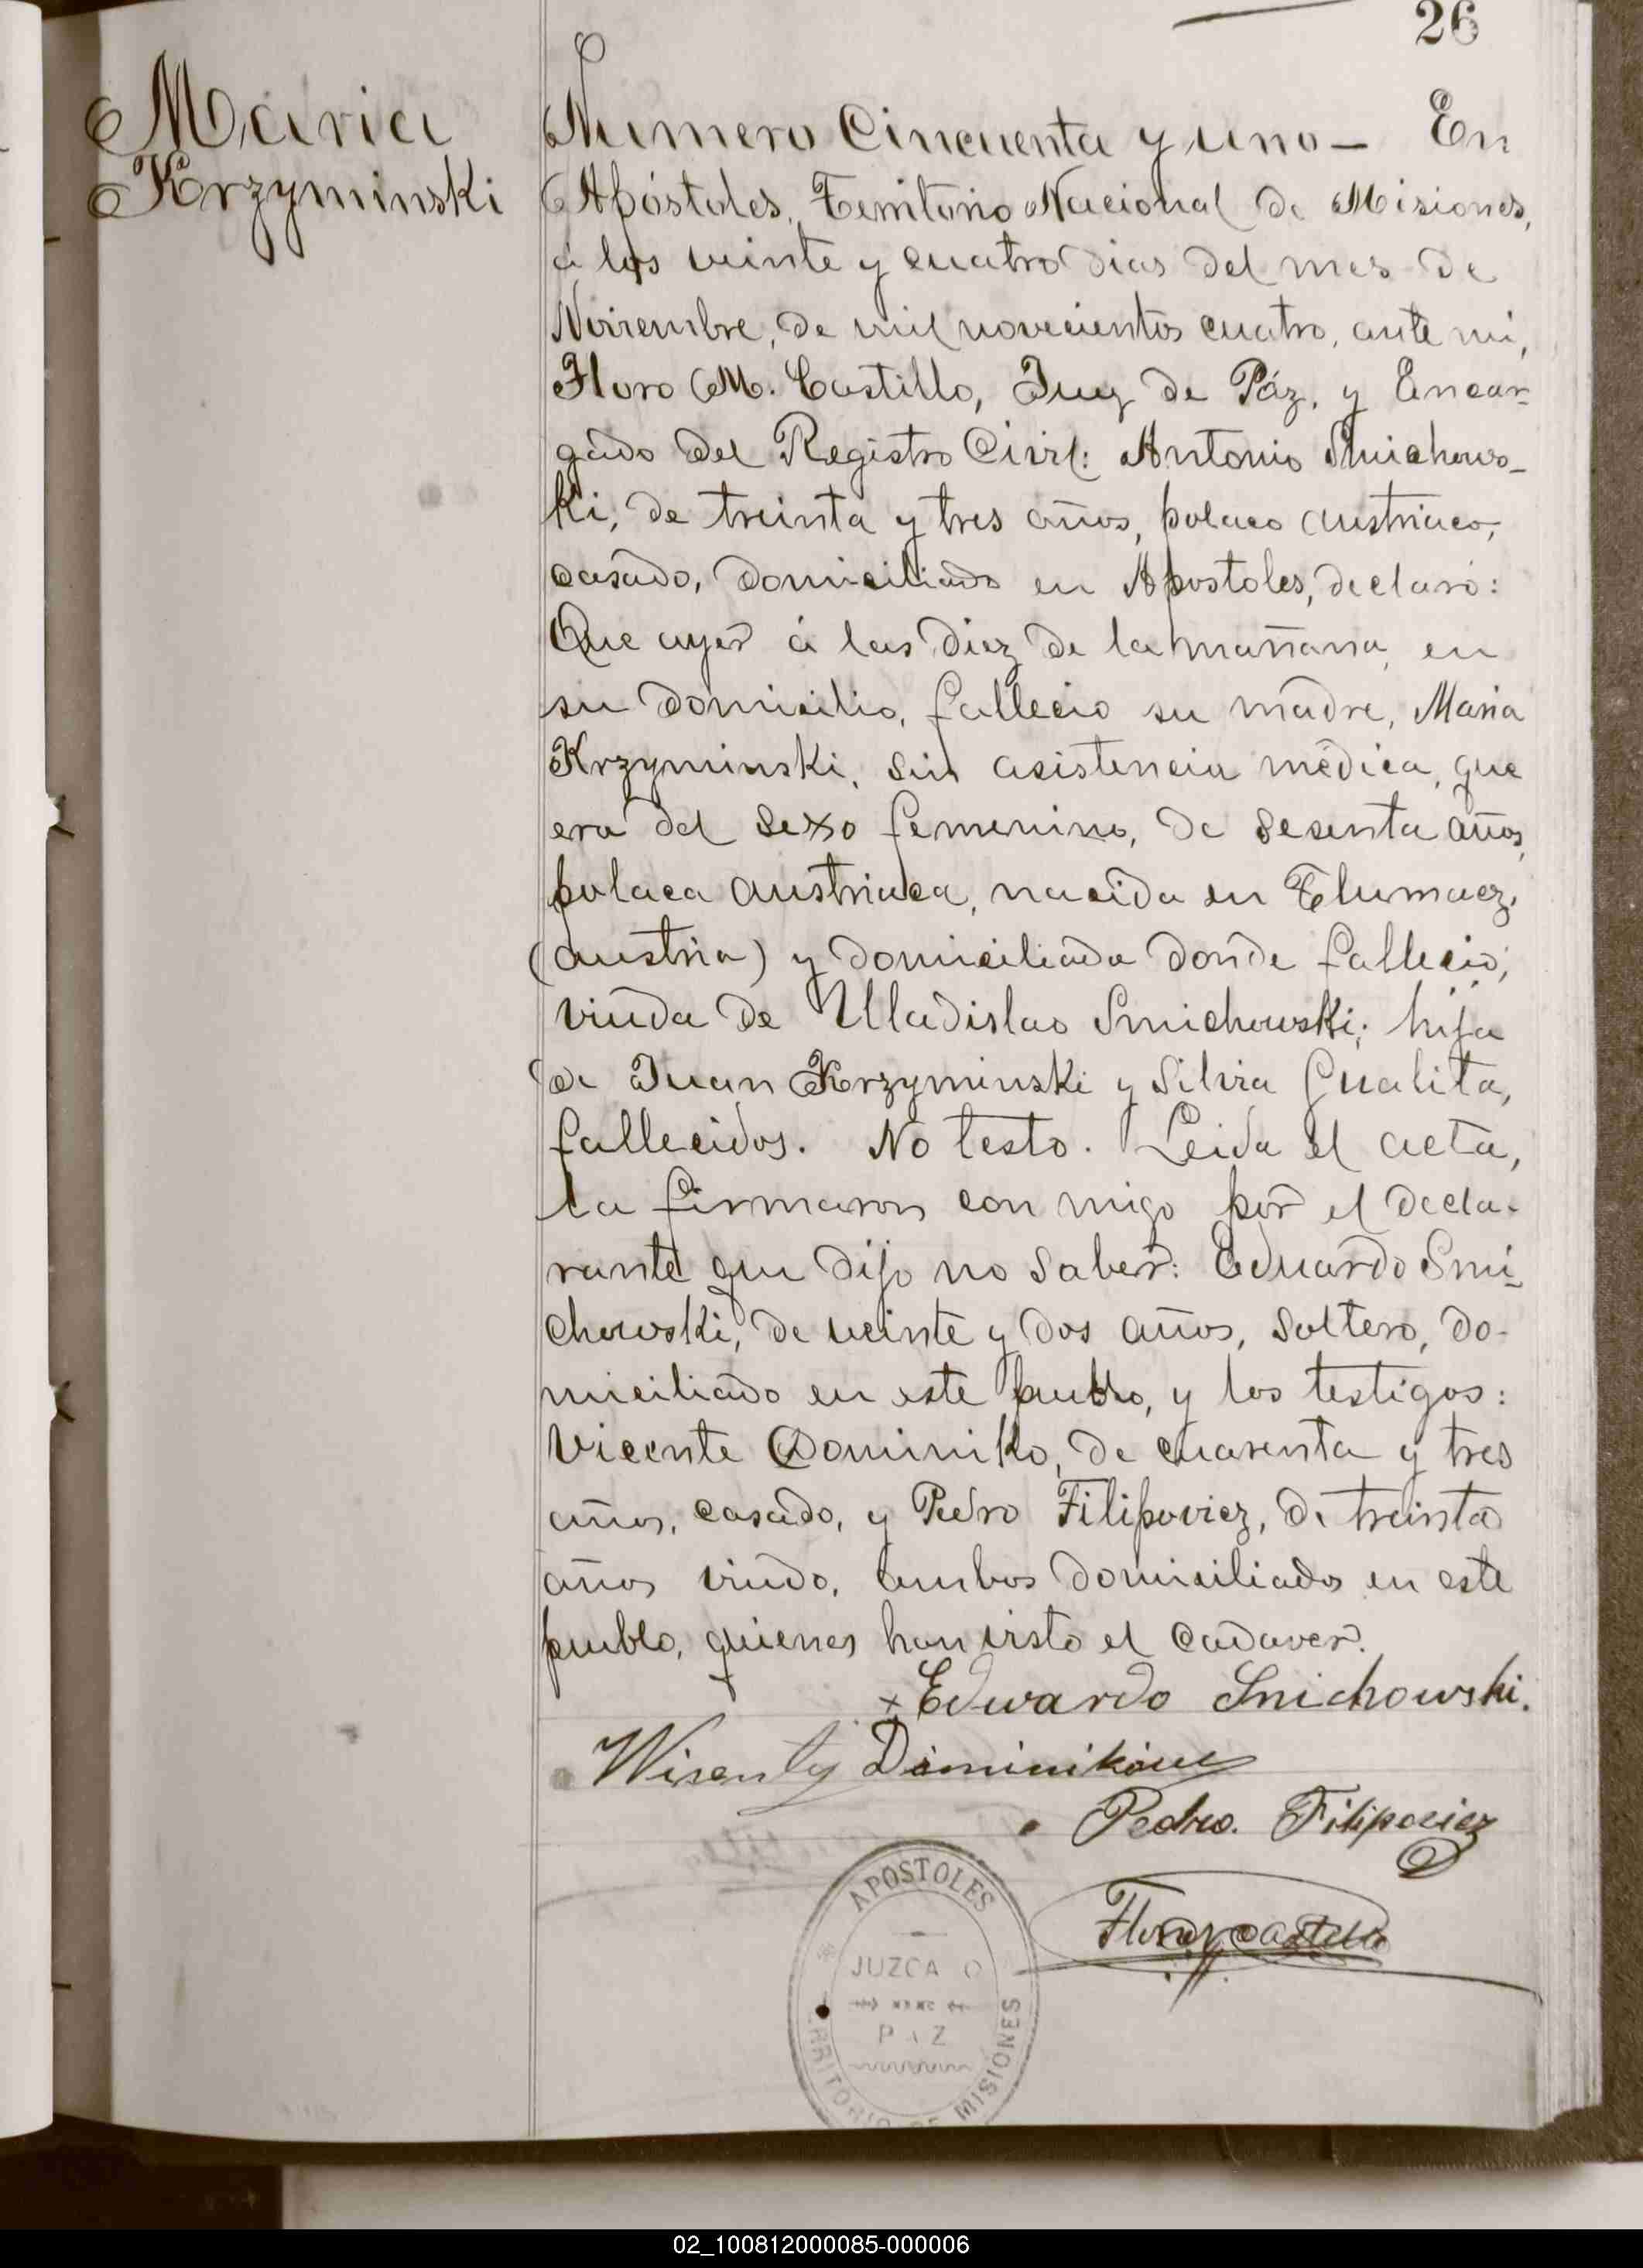 26
Maria
Krzyminski
Numero Cincuenta y uno — En
Apóstoles, Territorio Nacional de Misiones,
á los veinte y cuatro dias del mes de
Noviembre, de mil novecientos cuatro, ante mi,
Floro M. Castillo, Juez de Páz, y Encar-
gado del Registro Civil: Antonio Smichows-
ki, de treinta y tres años, polaco austriaco,
casado, domiciliado en Apostoles, declaró:
Que ayer á las diez de la mañana, en
su domicilio, fallecio su madre, Maria
Krzyminski, sin asistencia médica, que
era del sexo femenino, de sesenta años,
polaca austriaca, nacida en Tlumacz,
(austria) y domiciliada donde fallecio;
viuda de Uladislao Smichowski; hija
de Juan Krzyminski y Silvia Gualita,
fallecidos. No testo. Leida el acta,
la firmaron con migo por el decla-
rante que dijo no saber: Eduardo Smi-
chowski, de veinte y dos años, soltero, do-
miciliado en este pueblo, y los testigos:
Vicente Dominiko, de cuarenta y tres
años, casado, y Pedro Filipovicz, de treinta
años viudo, ambos domiciliados en este
pueblo, quienes han visto el cadaver.
x Edwardo Snichowski.
Wisenty Dominików
Pedro. Filipovicz
Floro M Castillo
APOSTOLES
JUZGA O
PAZ
RRITORIO DE MISIONES
02_100812000085-000006